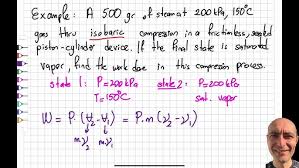 Example: A 500 gr of steam at 200 kPa, 150°C
goes thru isobaric compression in a frictionless, sealed
piston-cylinder device. If the final state is saturated
vapor, find the work done in this compression process.
state 1: P=200kPa state 2: P=200 kPa
T=150°C sat. vapor
W = P.(V₂-V₁) = P.m(ν₂-ν₁)
m.ν₂ m.ν₁